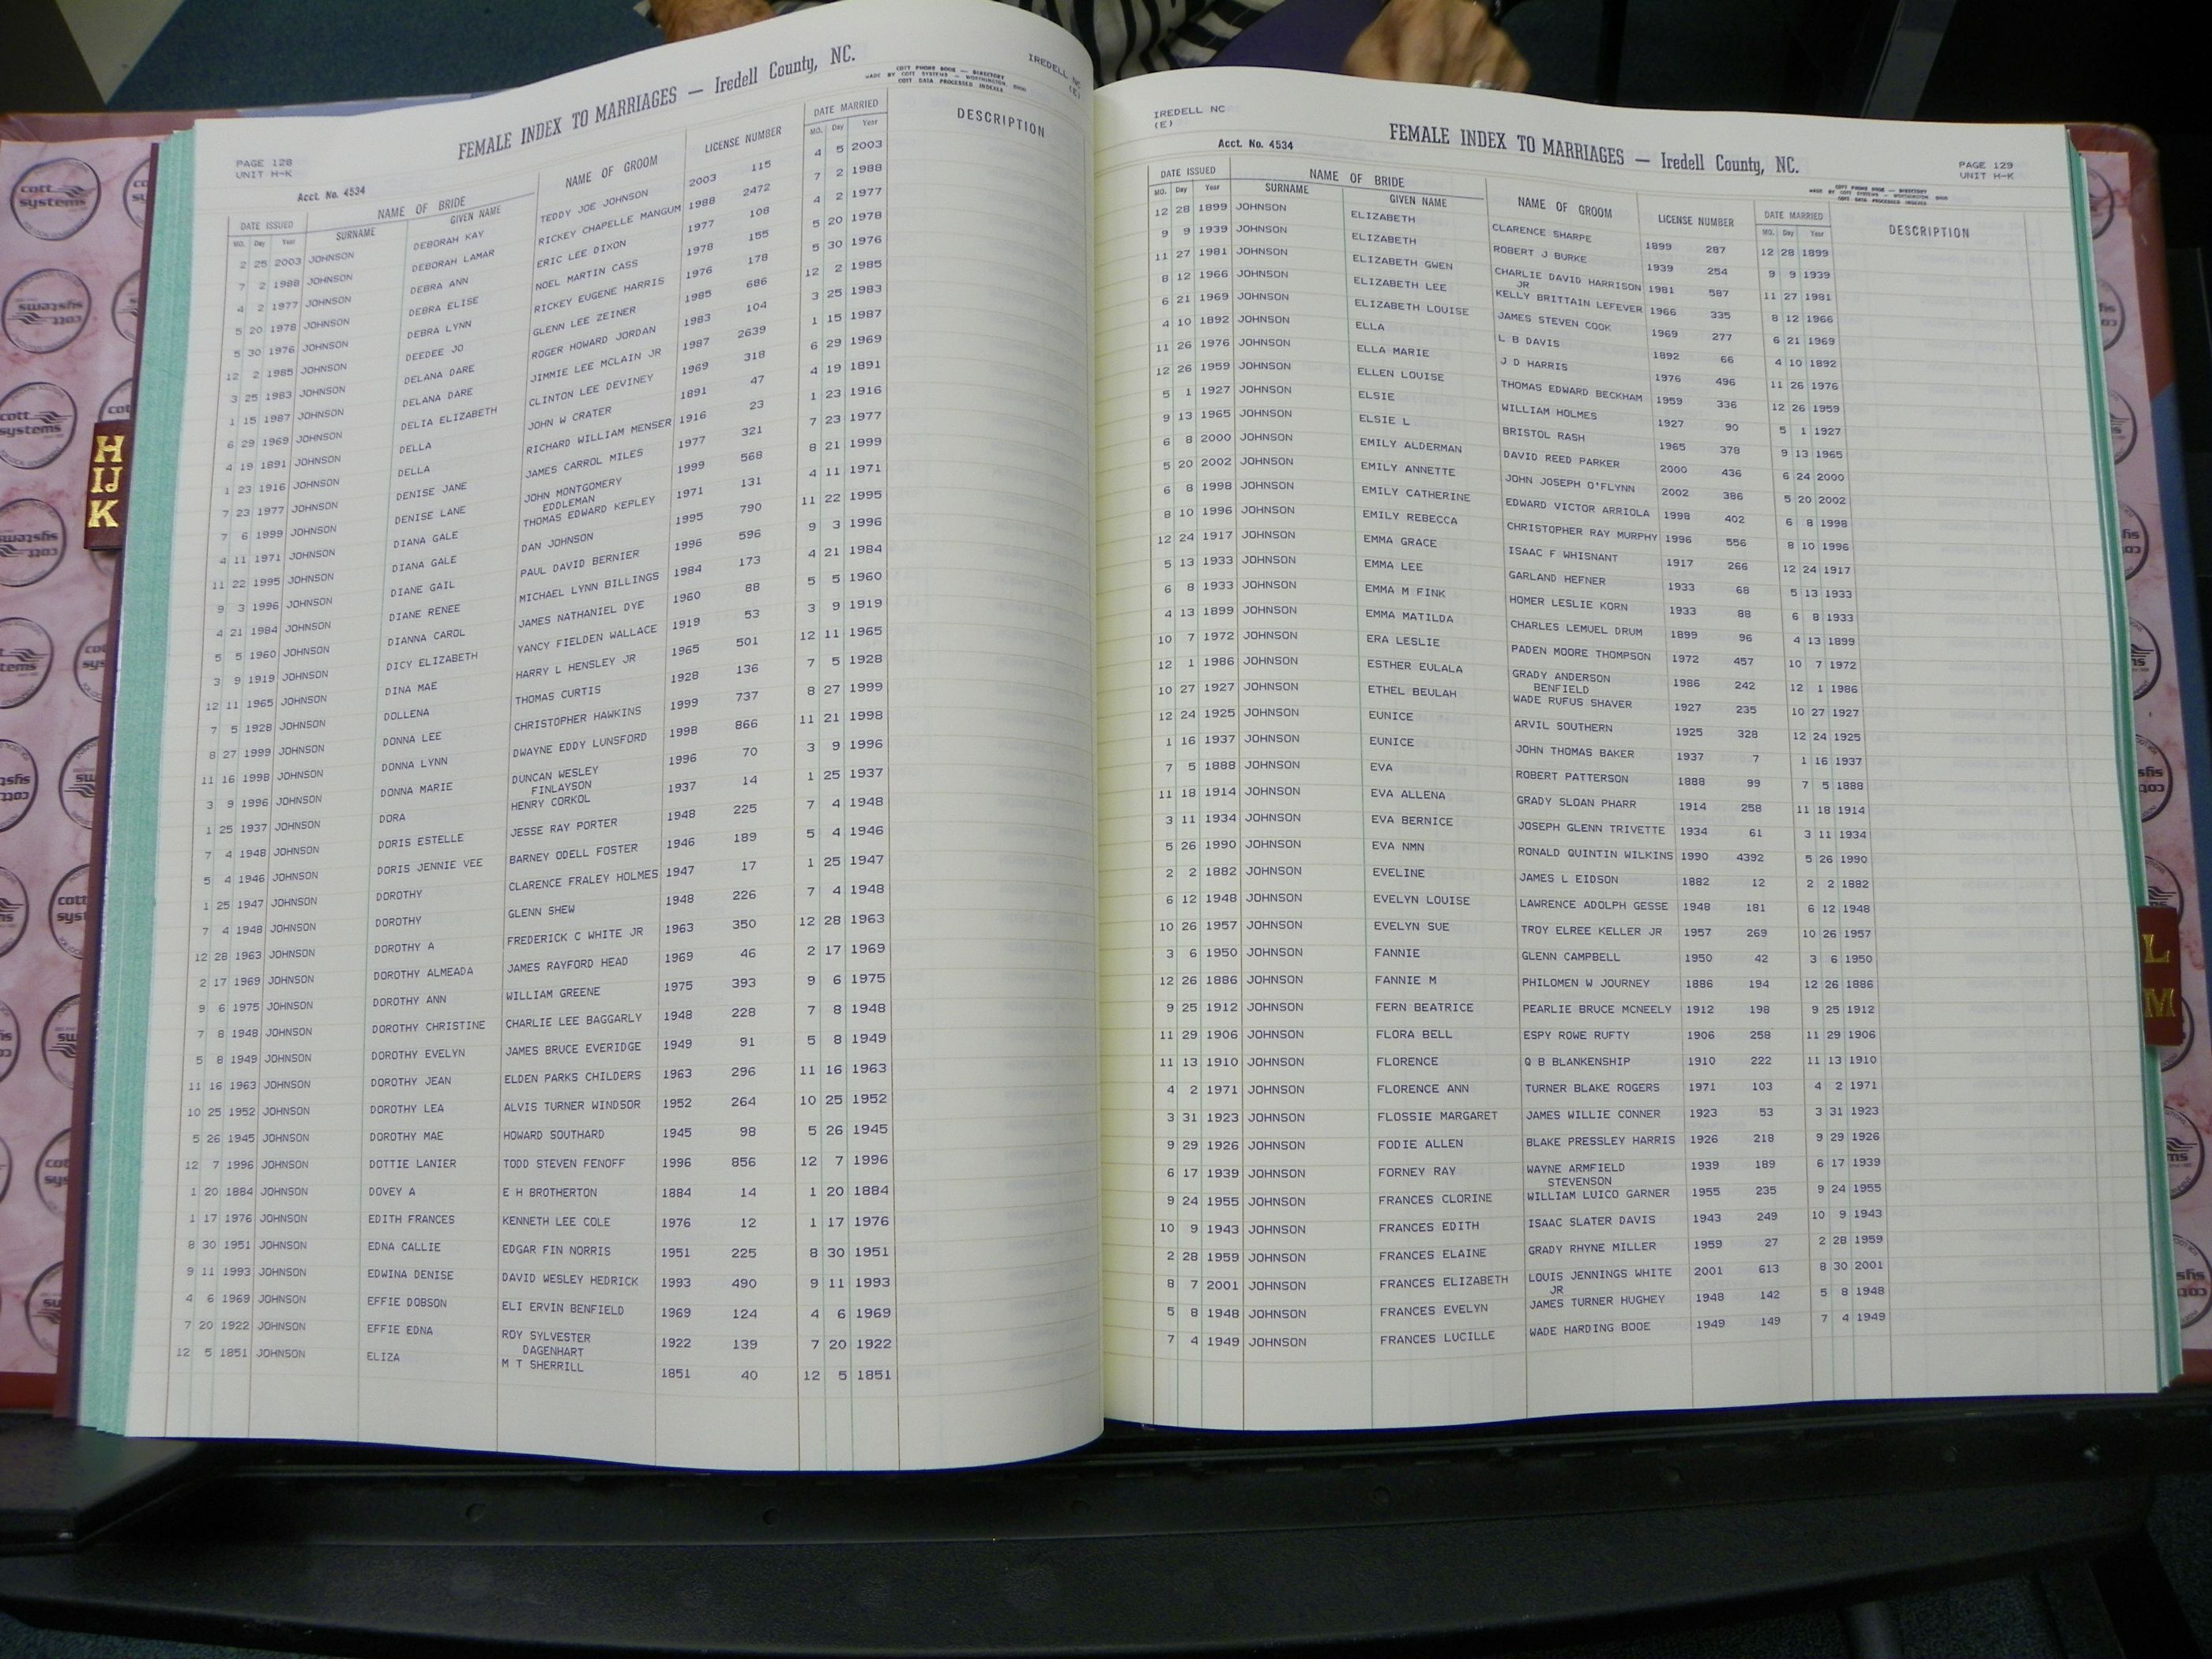 FEMALE INDEX TO MARRIAGES — Iredell County, NC.
IREDELL NC
(E)
COTT PHONE BOOK — DIRECTORY
MADE BY COTT SYSTEMS — WORTHINGTON
COTT DATA PROCESSED INDEXES
PAGE 128
UNIT H-K
Acct. No. 4534
DATE ISSUED NAME OF BRIDE NAME OF GROOM LICENSE NUMBER DATE MARRIED DESCRIPTION
MO. Day Year SURNAME GIVEN NAME MO. Day Year
2 25 2003 JOHNSON DEBORAH KAY TEDDY JOE JOHNSON 2003 115 4 5 2003
7 2 1988 JOHNSON DEBORAH LAMAR RICKEY CHAPELLE MANGUM 1988 2472 7 2 1988
4 2 1977 JOHNSON DEBRA ANN ERIC LEE DIXON 1977 108 4 2 1977
5 20 1978 JOHNSON DEBRA ELISE NOEL MARTIN CASS 1978 155 5 20 1978
5 30 1976 JOHNSON DEBRA LYNN RICKEY EUGENE HARRIS 1976 178 5 30 1976
12 2 1985 JOHNSON DEEDEE JO GLENN LEE ZEINER 1985 686 12 2 1985
3 25 1983 JOHNSON DELANA DARE ROGER HOWARD JORDAN 1983 104 3 25 1983
1 15 1987 JOHNSON DELANA DARE JIMMIE LEE MCLAIN JR 1987 2639 1 15 1987
6 29 1969 JOHNSON DELIA ELIZABETH CLINTON LEE DEVINEY 1969 318 6 29 1969
4 19 1891 JOHNSON DELLA JOHN W CRATER 1891 47 4 19 1891
1 23 1916 JOHNSON DELLA RICHARD WILLIAM MENSER 1916 23 1 23 1916
7 23 1977 JOHNSON DENISE JANE JAMES CARROL MILES 1977 321 7 23 1977
7 6 1999 JOHNSON DENISE LANE JOHN MONTGOMERY 1999 568 8 21 1999
EDDLEMAN
4 11 1971 JOHNSON DIANA GALE THOMAS EDWARD KEPLEY 1971 131 4 11 1971
11 22 1995 JOHNSON DIANA GALE DAN JOHNSON 1995 790 11 22 1995
9 3 1996 JOHNSON DIANE GAIL PAUL DAVID BERNIER 1996 596 9 3 1996
4 21 1984 JOHNSON DIANE RENEE MICHAEL LYNN BILLINGS 1984 173 4 21 1984
5 5 1960 JOHNSON DIANNA CAROL JAMES NATHANIEL DYE 1960 88 5 5 1960
3 9 1919 JOHNSON DICY ELIZABETH YANCY FIELDEN WALLACE 1919 53 3 9 1919
12 11 1965 JOHNSON DINA MAE HARRY L HENSLEY JR 1965 501 12 11 1965
7 5 1928 JOHNSON DOLLENA THOMAS CURTIS 1928 136 7 5 1928
8 27 1999 JOHNSON DONNA LEE CHRISTOPHER HAWKINS 1999 737 8 27 1999
11 16 1998 JOHNSON DONNA LYNN DWAYNE EDDY LUNSFORD 1998 866 11 21 1998
3 9 1996 JOHNSON DONNA MARIE DUNCAN WESLEY 1996 70 3 9 1996
FINLAYSON
1 25 1937 JOHNSON DORA HENRY CORKOL 1937 14 1 25 1937
7 4 1948 JOHNSON DORIS ESTELLE JESSE RAY PORTER 1948 225 7 4 1948
5 4 1946 JOHNSON DORIS JENNIE VEE BARNEY ODELL FOSTER 1946 189 5 4 1946
1 25 1947 JOHNSON DOROTHY CLARENCE FRALEY HOLMES 1947 17 1 25 1947
7 4 1948 JOHNSON DOROTHY GLENN SHEW 1948 226 7 4 1948
12 28 1963 JOHNSON DOROTHY A FREDERICK C WHITE JR 1963 350 12 28 1963
2 17 1969 JOHNSON DOROTHY ALMEADA JAMES RAYFORD HEAD 1969 46 2 17 1969
9 6 1975 JOHNSON DOROTHY ANN WILLIAM GREENE 1975 393 9 6 1975
7 8 1948 JOHNSON DOROTHY CHRISTINE CHARLIE LEE BAGGARLY 1948 228 7 8 1948
5 8 1949 JOHNSON DOROTHY EVELYN JAMES BRUCE EVERIDGE 1949 91 5 8 1949
11 16 1963 JOHNSON DOROTHY JEAN ELDEN PARKS CHILDERS 1963 296 11 16 1963
10 25 1952 JOHNSON DOROTHY LEA ALVIS TURNER WINDSOR 1952 264 10 25 1952
5 26 1945 JOHNSON DOROTHY MAE HOWARD SOUTHARD 1945 98 5 26 1945
12 7 1996 JOHNSON DOTTIE LANIER TODD STEVEN FENOFF 1996 856 12 7 1996
1 20 1884 JOHNSON DOVEY A E H BROTHERTON 1884 14 1 20 1884
1 17 1976 JOHNSON EDITH FRANCES KENNETH LEE COLE 1976 12 1 17 1976
8 30 1951 JOHNSON EDNA CALLIE EDGAR FIN NORRIS 1951 225 8 30 1951
9 11 1993 JOHNSON EDWINA DENISE DAVID WESLEY HEDRICK 1993 490 9 11 1993
4 6 1969 JOHNSON EFFIE DOBSON ELI ERVIN BENFIELD 1969 124 4 6 1969
7 20 1922 JOHNSON EFFIE EDNA ROY SYLVESTER 1922 139 7 20 1922
DAGENHART
12 5 1851 JOHNSON ELIZA M T SHERRILL 1851 40 12 5 1851
IREDELL NC
(E)
FEMALE INDEX TO MARRIAGES — Iredell County, NC.
Acct. No. 4534
PAGE 129
UNIT H-K
COTT PHONE BOOK — DIRECTORY
MADE BY COTT SYSTEMS — WORTHINGTON
COTT DATA PROCESSED INDEXES
DATE ISSUED NAME OF BRIDE NAME OF GROOM LICENSE NUMBER DATE MARRIED DESCRIPTION
MO. Day Year SURNAME GIVEN NAME MO. Day Year
12 28 1899 JOHNSON ELIZABETH CLARENCE SHARPE 1899 287 12 28 1899
9 9 1939 JOHNSON ELIZABETH ROBERT J BURKE 1939 254 9 9 1939
11 27 1981 JOHNSON ELIZABETH GWEN CHARLIE DAVID HARRISON 1981 587 11 27 1981
JR
8 12 1966 JOHNSON ELIZABETH LEE KELLY BRITTAIN LEFEVER 1966 335 8 12 1966
6 21 1969 JOHNSON ELIZABETH LOUISE JAMES STEVEN COOK 1969 277 6 21 1969
4 10 1892 JOHNSON ELLA L B DAVIS 1892 66 4 10 1892
11 26 1976 JOHNSON ELLA MARIE J D HARRIS 1976 496 11 26 1976
12 26 1959 JOHNSON ELLEN LOUISE THOMAS EDWARD BECKHAM 1959 336 12 26 1959
5 1 1927 JOHNSON ELSIE WILLIAM HOLMES 1927 90 5 1 1927
9 13 1965 JOHNSON ELSIE L BRISTOL RASH 1965 378 9 13 1965
6 8 2000 JOHNSON EMILY ALDERMAN DAVID REED PARKER 2000 436 6 24 2000
5 20 2002 JOHNSON EMILY ANNETTE JOHN JOSEPH O'FLYNN 2002 386 5 20 2002
6 8 1998 JOHNSON EMILY CATHERINE EDWARD VICTOR ARRIOLA 1998 402 6 8 1998
8 10 1996 JOHNSON EMILY REBECCA CHRISTOPHER RAY MURPHY 1996 556 8 10 1996
12 24 1917 JOHNSON EMMA GRACE ISAAC F WHISNANT 1917 266 12 24 1917
5 13 1933 JOHNSON EMMA LEE GARLAND HEFNER 1933 68 5 13 1933
6 8 1933 JOHNSON EMMA M FINK HOMER LESLIE KORN 1933 88 6 8 1933
4 13 1899 JOHNSON EMMA MATILDA CHARLES LEMUEL DRUM 1899 96 4 13 1899
10 7 1972 JOHNSON ERA LESLIE PADEN MOORE THOMPSON 1972 457 10 7 1972
12 1 1986 JOHNSON ESTHER EULALA GRADY ANDERSON 1986 242 12 1 1986
BENFIELD
10 27 1927 JOHNSON ETHEL BEULAH WADE RUFUS SHAVER 1927 235 10 27 1927
12 24 1925 JOHNSON EUNICE ARVIL SOUTHERN 1925 328 12 24 1925
1 16 1937 JOHNSON EUNICE JOHN THOMAS BAKER 1937 7 1 16 1937
7 5 1888 JOHNSON EVA ROBERT PATTERSON 1888 99 7 5 1888
11 18 1914 JOHNSON EVA ALLENA GRADY SLOAN PHARR 1914 258 11 18 1914
3 11 1934 JOHNSON EVA BERNICE JOSEPH GLENN TRIVETTE 1934 61 3 11 1934
5 26 1990 JOHNSON EVA NMN RONALD QUINTIN WILKINS 1990 4392 5 26 1990
2 2 1882 JOHNSON EVELINE JAMES L EIDSON 1882 12 2 2 1882
6 12 1948 JOHNSON EVELYN LOUISE LAWRENCE ADOLPH GESSE 1948 181 6 12 1948
10 26 1957 JOHNSON EVELYN SUE TROY ELREE KELLER JR 1957 269 10 26 1957
3 6 1950 JOHNSON FANNIE GLENN CAMPBELL 1950 42 3 6 1950
12 26 1886 JOHNSON FANNIE M PHILOMEN W JOURNEY 1886 194 12 26 1886
9 25 1912 JOHNSON FERN BEATRICE PEARLIE BRUCE MCNEELY 1912 198 9 25 1912
11 29 1906 JOHNSON FLORA BELL ESPY ROWE RUFTY 1906 258 11 29 1906
11 13 1910 JOHNSON FLORENCE Q B BLANKENSHIP 1910 222 11 13 1910
4 2 1971 JOHNSON FLORENCE ANN TURNER BLAKE ROGERS 1971 103 4 2 1971
3 31 1923 JOHNSON FLOSSIE MARGARET JAMES WILLIE CONNER 1923 53 3 31 1923
9 29 1926 JOHNSON FODIE ALLEN BLAKE PRESSLEY HARRIS 1926 218 9 29 1926
6 17 1939 JOHNSON FORNEY RAY WAYNE ARMFIELD 1939 189 6 17 1939
STEVENSON
9 24 1955 JOHNSON FRANCES CLORINE WILLIAM LUICO GARNER 1955 235 9 24 1955
10 9 1943 JOHNSON FRANCES EDITH ISAAC SLATER DAVIS 1943 249 10 9 1943
2 28 1959 JOHNSON FRANCES ELAINE GRADY RHYNE MILLER 1959 27 2 28 1959
8 7 2001 JOHNSON FRANCES ELIZABETH LOUIS JENNINGS WHITE 2001 613 8 30 2001
JR
5 8 1948 JOHNSON FRANCES EVELYN JAMES TURNER HUGHEY 1948 142 5 8 1948
7 4 1949 JOHNSON FRANCES LUCILLE WADE HARDING BOOE 1949 149 7 4 1949
H
IJ
K
L
M
cott
systems